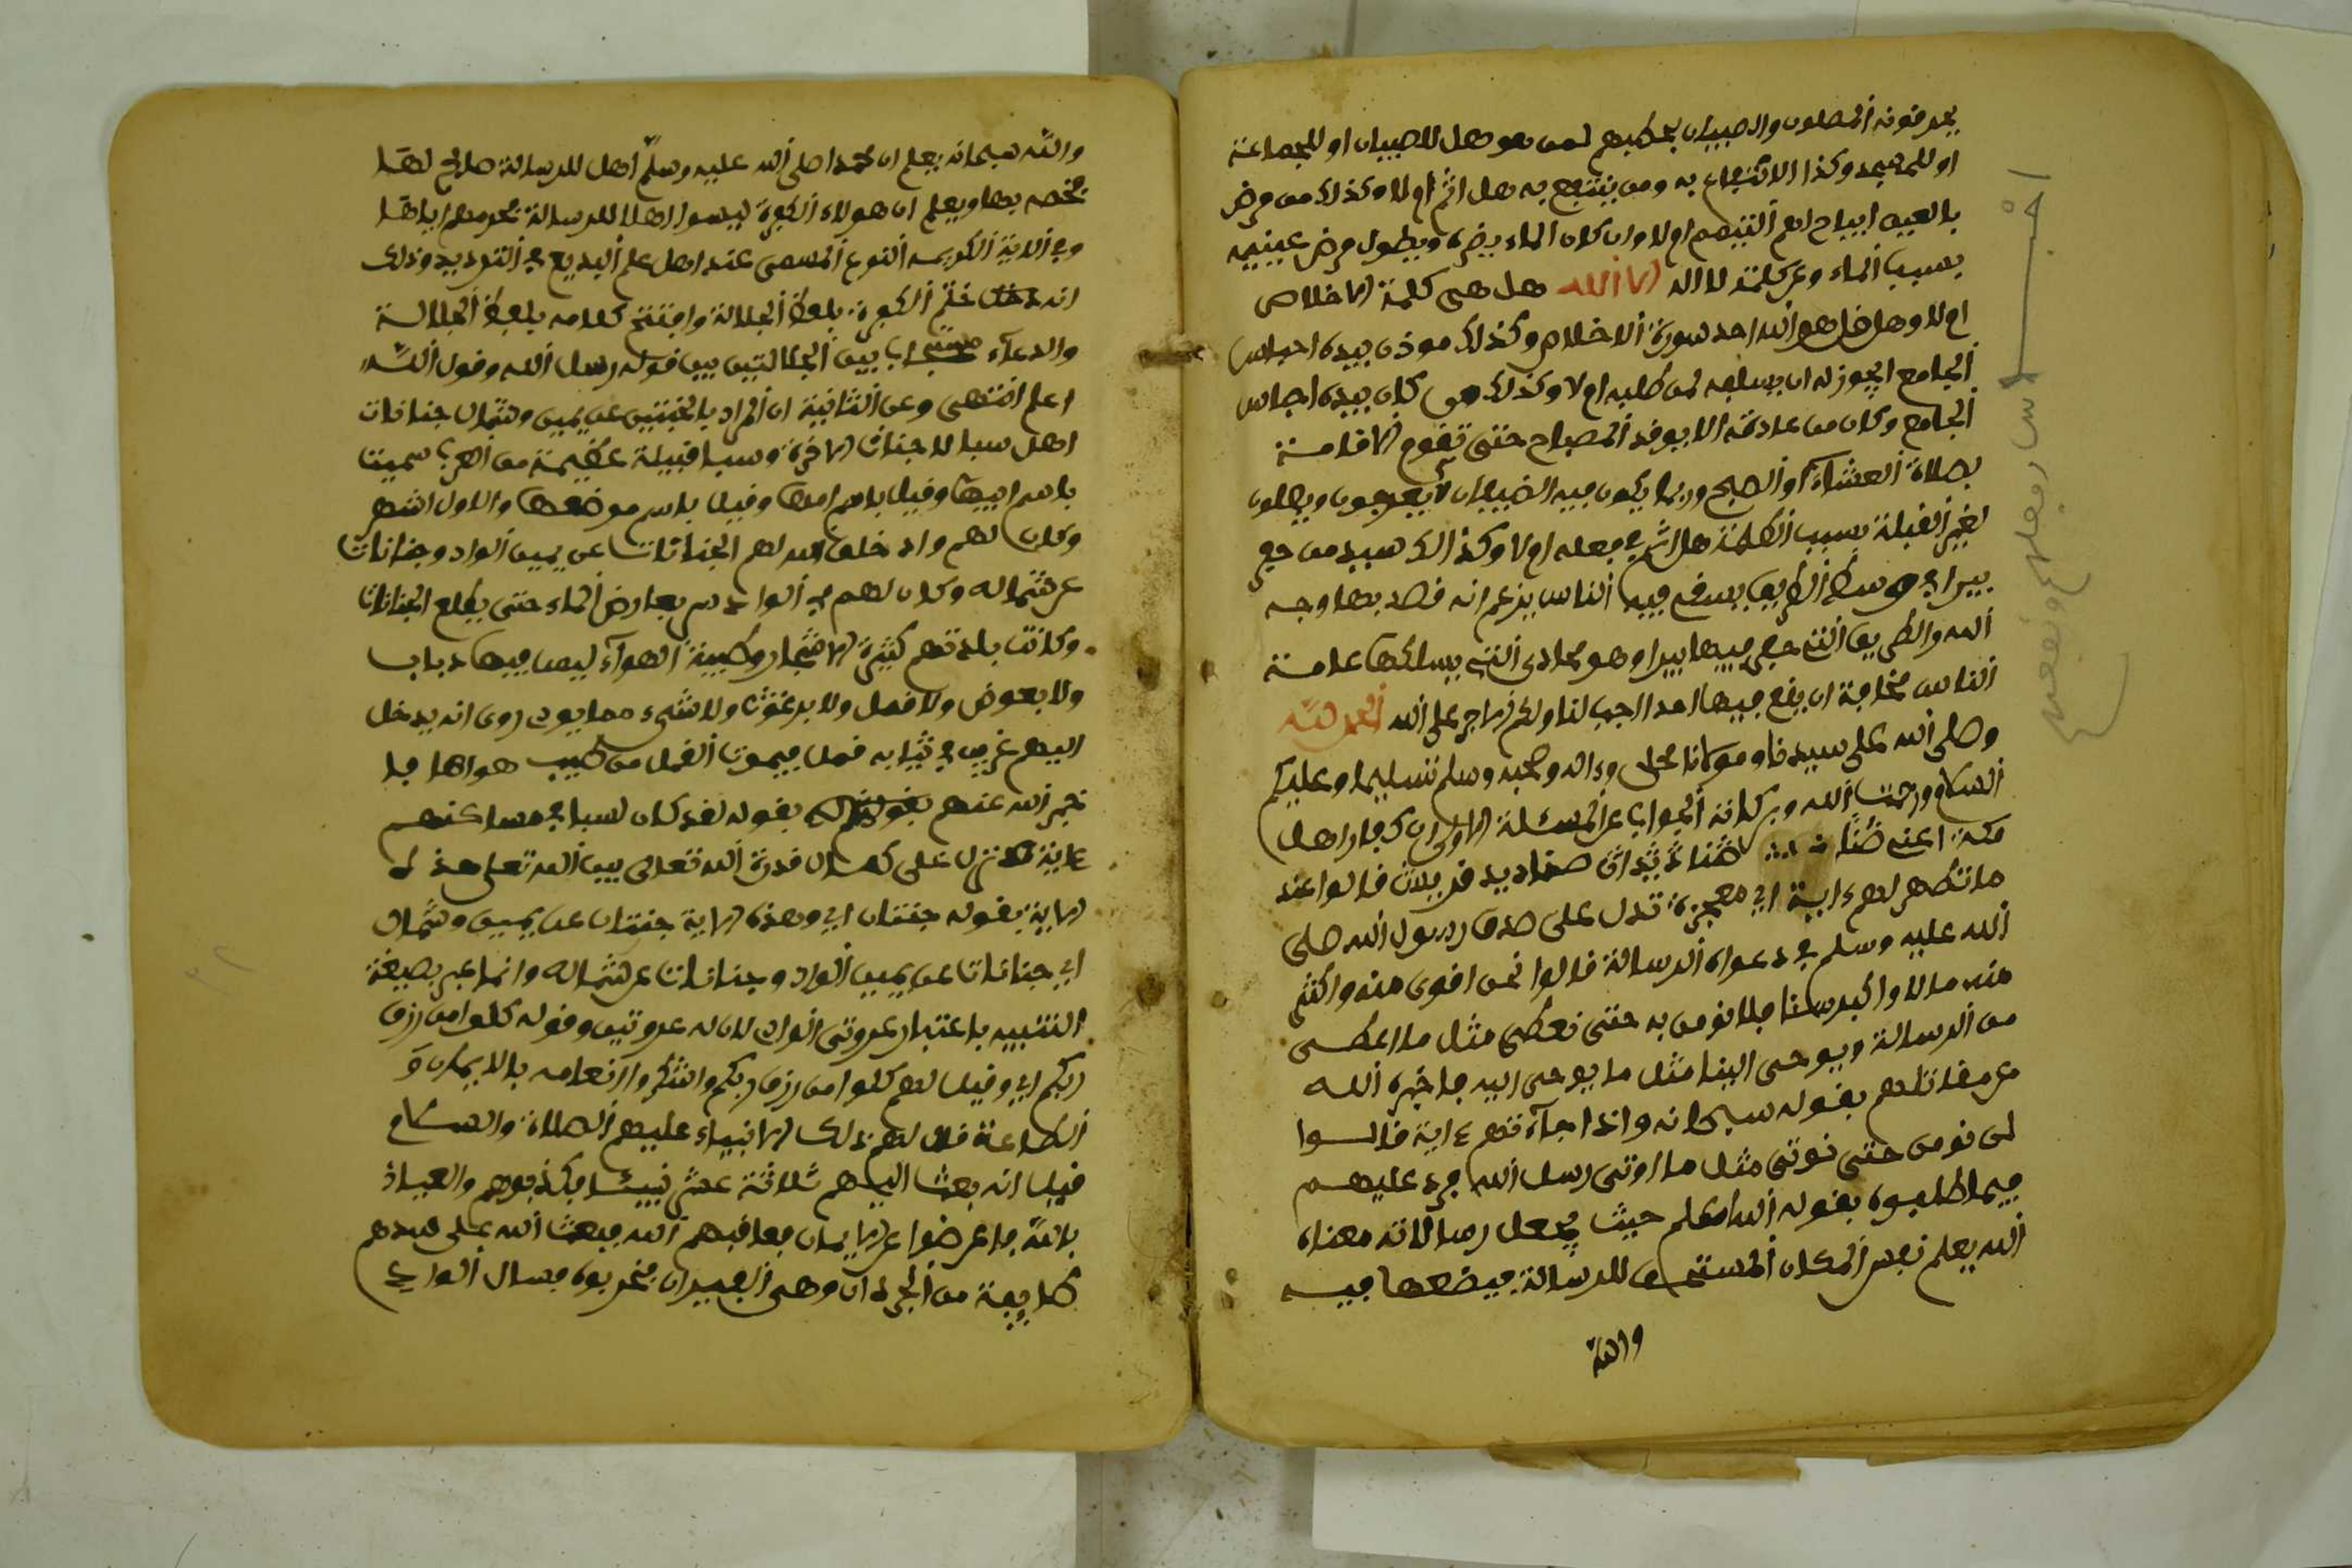 يحرفونه المصلون والصبيان بحكمهم لمن هو هل للصبيان او للجماعة
او للمسجد وكذا الانتفاع به ومن ينتفع به هل اثم ام لا وكذلك من مرض
بالعين ايباح لهم التيمم ام لا وان كان الماء يضره ويطول مرض عينيه
بسبب الماء وعن كلمة لا اله الا الله هل هي كلمة الاخلاص
ام لا وهل قل هو الله احد سورة الاخلاص وكذلك موذن بيده احباس
الجامع ايجوز له ان يسلفه لمن طلبه ام لا وكذلك من كان بيده احباس
الجامع وكان من عادته الا يوقد المصباح حتى تقوم الاقامة
بصلاة العشاء او الصبح وربما يكون فيه الضيفان لا يعرفون ويصلون
لغير القبلة بسبب الظلمة هل اثم في فعله ام لا وكذا السيد من حفر
بيرا في وسط الطريق يسقي فيه الناس يزعم انه قصد بها وجه
الله والطريق التي حفر فيها بيرا وهو محادي التي يسلكها عامة
الناس مخافة ان يقع فيها احد اجب لنا ولكم الاجر على الله الحمد لله
وصلى الله على سيدنا ومولانا محمد وءاله وصحبه وسلم تسليما وعليكم
السلام ورحمت الله وبركاته الجواب عن المسئلة الاولى ان كفار اهل
مكة اعني صناديد قريش قالوا عند
ما تظهر لهم ءاية اي معجزة تدل على صدق رسول الله صلى
الله عليه وسلم في دعواه الرسالة قالوا نحن اقوى منه واكثر
منه مالا واكبر سنا فلا نومن به حتى نعطى مثل ما اعطي
من الرسالة ويوحى الينا مثل ما يوحى اليه فاخبر الله
عن مقالتهم بقوله سبحانه واذا جآءتهم ءاية قالوا
لن نومن حتى نوتى مثل ما اوتي رسل الله فرد عليهم
فيما طلبوه بقوله الله اعلم حيث يجعل رسالاته معناه
الله يعلم نفس المكان المستحق للرسالة فيضعها فيه
والله
والله سبحانه يعلم ان محمدا صلى الله عليه وسلم اهل للرسالة صالح لها
فخصه بها ويعلم ان هولاء الكفرة ليسوا اهلا للرسالة فحرمهم اياها
وفي الاية الكريمة النوع المسمى عند اهل علم البديع في الترديد وذلك
انه ختم الكفرة بلفظ الجلالة وافتتح كلامه بلفظ الجلالة
والدعآء مستجاب بين الجلالتين بين قوله رسل الله وقول الله
اعلم انتهى وعن الثانية ان المراد بالجنتين عن يمين وشمال جنانات
اهل سبا لا جنات الاخرة وسبا قبيلة عظيمة من العرب سميت
باسم ابيها وقيل باسم امها وقيل باسم موضعها والاول اشهر
وكان لهم واد خلق الله لهم الجنانات عن يمين الواد وجنانات
عن شماله وكان لهم في الواد سد يعارض الماء حتى يطلع الجنانات
وكانت بلدتهم كثيرة الاشجار وطيبة الهوآء ليس فيها ذباب
ولا بعوض ولا قمل ولا برغوث ولا شيء مما يوذي روي انه يدخل
اليهم غريب في ثيابه قمل فيموت القمل من طيب هواها فا
خبر الله عنهم بقوله لقد كان لسبا في مساكنهم
ءاية تدل على كمال قدرة الله تعالى بين الله تعلى هذه ا
لاية بقوله جنتان اي وهذه الاية جنتان عن يمين وشمال
اي جنانات عن يمين الواد وجنانات عن شماله وانما عبر بصيغة
التثنية باعتبار عدوتي الواد لان له عدوتين وقوله كلوا من رزق
ربكم اي وقيل لهم كلوا من رزق ربكم واشكروا انعامه بالايمان و
الطاعة قال لهم ذلك الانبياء عليهم الصلاة والسلام
قيل انه بعث اليهم ثلاثة عشر نبيئا فكذبوهم والعياذ
بالله فاعرضوا عن الايمان فعاقبهم الله فبعث الله على سدهم
طايفة من الجرذان وهي الفيران فخربوه فسال الوادي